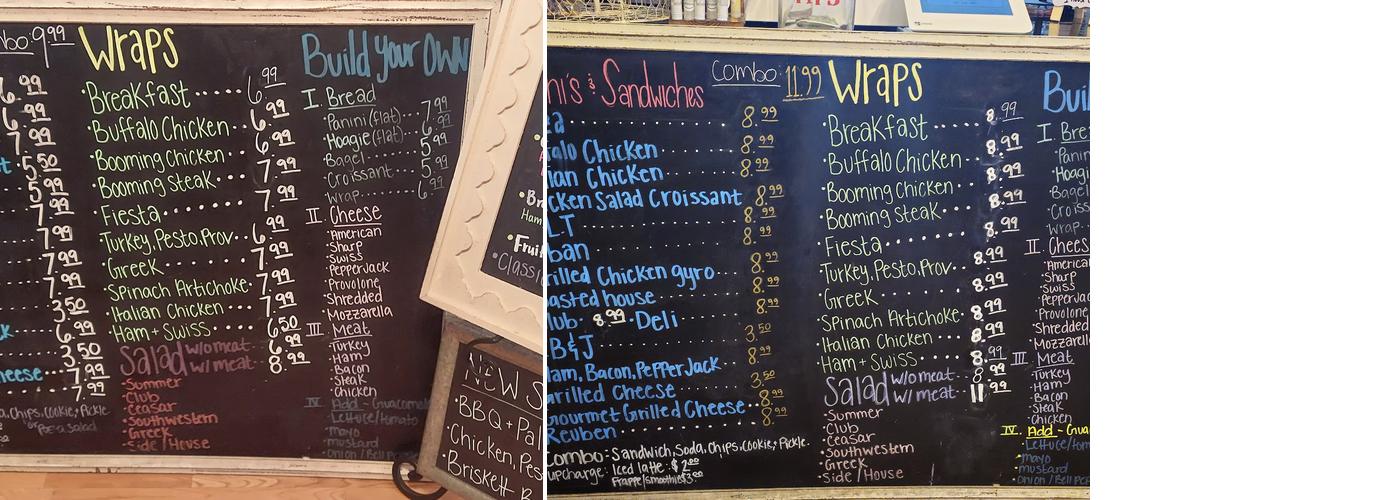 Combo: 9.99
Wraps
•Breakfast ..... 6.99
•Buffalo Chicken .. 6.99
•Booming Chicken . 7.99
•Booming Steak . 7.99
•Fiesta ....... 7.99
•Turkey, Pesto, Prov. .. 6.99
•Greek ....... 7.99
•Spinach Artichoke . 7.99
•Italian Chicken .. 7.99
•Ham + Swiss .... 6.50
Salad w/o meat ... 6.99
w/ meat .... 8.99
•Summer
•Club
•Ceasar
•Southwestern
•Greek
•Side / House
6.99
6.99
7.99
5.50
5.99
7.99
7.99
7.99
7.99
3.50
6.99
3.50
7.99
7.99
Chips, Cookie, Pickle
or Pasta Salad
Build your OWN
I. Bread
•Panini (flat) .. 7.99
•Hoagie (flat) .. 6.99
•Bagel ..... 5.99
•Croissant .... 5.99
•Wrap ..... 6.99
II. Cheese
•American
•Sharp
•Swiss
•PepperJack
•Provolone
•Shredded
•Mozzarella
III. Meat
•Turkey
•Ham
•Bacon
•Steak
•Chicken
IV. Add - Guacamole
•Lettuce/tomato
•mayo
•mustard
•Onion / Bell Pepper
•Br
Ham
•Fruit
•Classi
NEW S
•BBQ + Pal
•Chicken, Pes
•Briskett B
ni's & Sandwiches
Combo: 11.99
8.99
alo Chicken ...... 8.99
ian Chicken ...... 8.99
cken Salad Croissant 8.99
LT ...... 8.99
ban ...... 8.99
rilled Chicken gyro .... 8.99
asted house ...... 8.99
lub • 8.99 • Deli ..... 8.99
B&J ...... 3.50
am, Bacon, Pepper Jack .. 8.99
rilled Cheese ..... 3.50
Gourmet Grilled Cheese .. 8.99
Reuben ....... 8.99
Combo: Sandwich, Soda, Chips, Cookie, Pickle.
upcharge: Iced latte : $2.00
Frappe/smoothie $3.00
Wraps
•Breakfast ..... 8.99
•Buffalo Chicken .. 8.99
•Booming Chicken . 8.99
•Booming Steak . 8.99
•Fiesta ....... 8.99
•Turkey, Pesto, Prov. .. 8.99
•Greek ....... 8.99
•Spinach Artichoke . 8.99
•Italian Chicken .. 8.99
•Ham + Swiss .... 8.99
Salad w/o meat .. 8.99
w/ meat .... 11.99
•Summer
•Club
•Ceasar
•Southwestern
•Greek
•Side / House
Bui
I. Bre
•Panin
•Hoagi
•Bagel
•Croiss
•Wrap
II. Chees
•America
•Sharp
•Swiss
•PepperJac
•Provolone
•Shredded
•Mozzarell
III. Meat
•Turkey
•Ham
•Bacon
•Steak
•Chicken
IV. Add - Gua
•Lettuce/tom
•mayo
•mustard
•Onion / Bell P